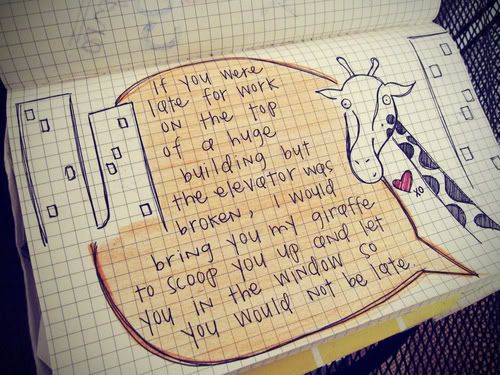 If you were
late for work
on the top
of a huge
building but
the elevator was
broken, I would
bring you my giraffe
to scoop you up and let
you in the window so
you would not be late.
xo